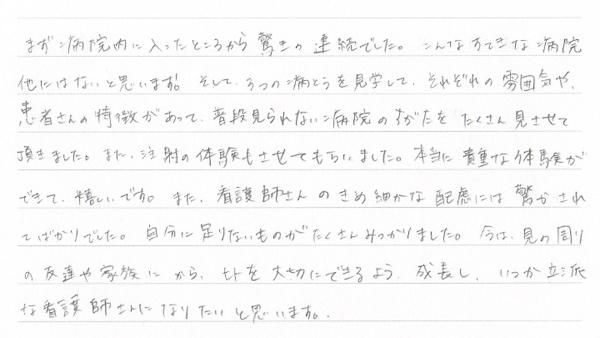 まず病院内に入ったところから驚きの連続でした。こんなすてきな病院
他にはないと思います。そして、3つの病とうを見学して、それぞれの雰囲気や、
患者さんの特徴があって、普段見られない病院のすがたをたくさん見させて
頂きました。また、注射の体験もさせてもらいました。本当に貴重な体験が
できて、嬉しいです。また、看護師さんのきめ細かな配慮には驚かされ
てばかりでした。自分に足りないものがたくさんみつかりました。今は、見の周り
の友達や家族にから、ヒトを大切にできるよう、成長し、いつか立派
な看護師さんになりたいと思います。